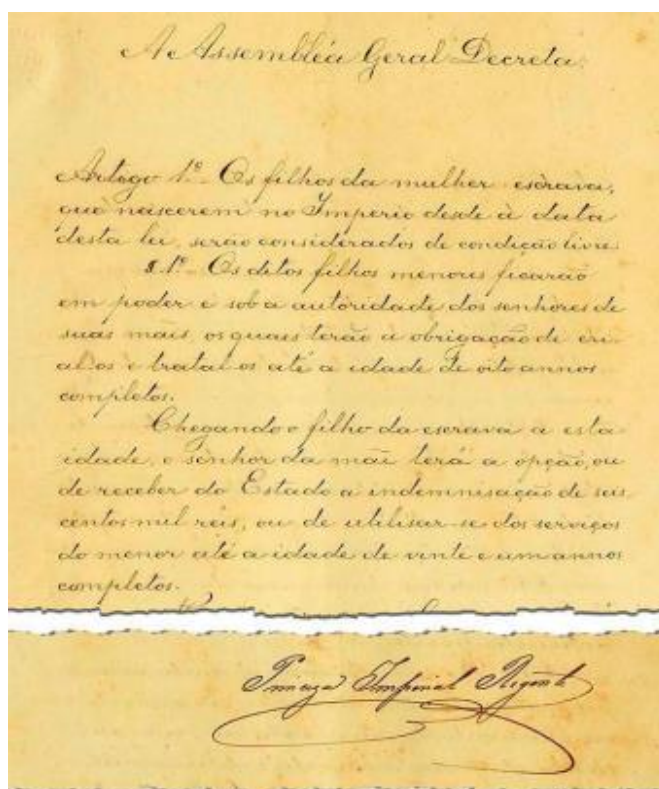 A Assembléa Geral Decreta:
Artigo 1º Os filhos da mulher escrava,
que nascerem no Imperio desde a data
desta lei, serão considerados de condição livre.
§ 1º Os ditos filhos menores ficarão
em poder e sob a autoridade dos senhores de
suas mais, os quais terão a obrigação de cri-
al-os e tratal-os até a idade de oito annos
completos.
Chegando o filho da escrava a esta
idade, o senhor da mãi terá a opção, ou
de receber do Estado a indemnisação de seis
centos mil reis, ou de utilisar-se dos serviços
do menor até a idade de vinte e um annos
completos.
Princeza Imperial Regente